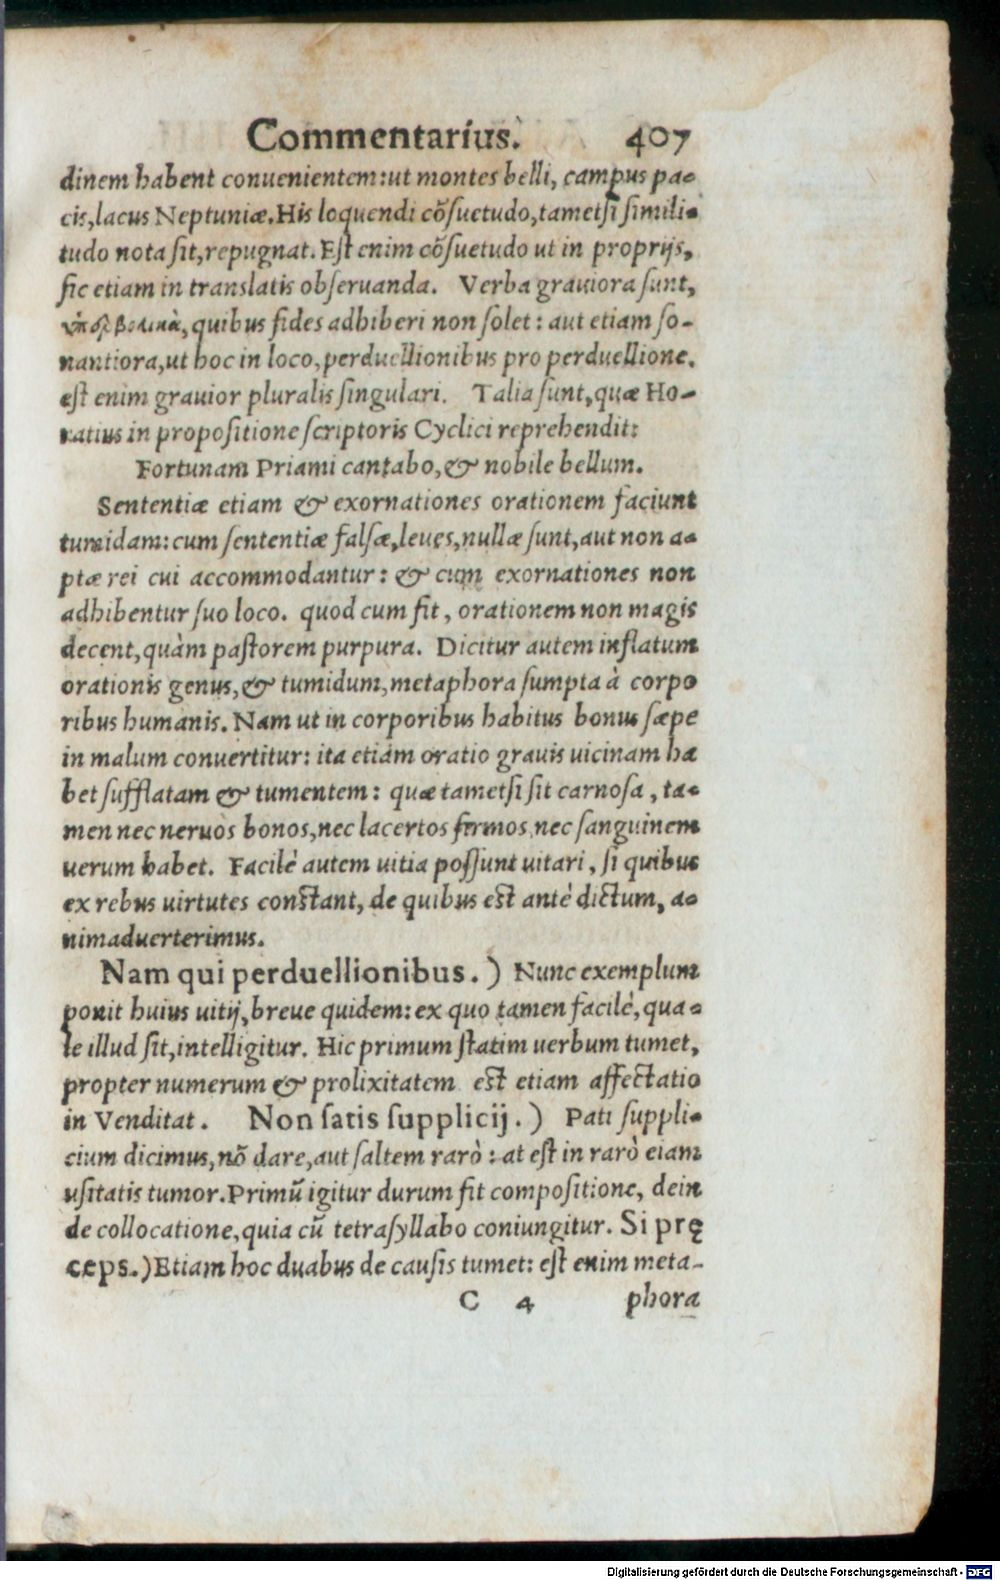 Commentarius. 407
dinem habent conuenientem: ut montes belli, campus pa-
cis, lacus Neptuniæ. His loquendi cõsuetudo, tametsi simili-
tudo nota sit, repugnat. Est enim cõsuetudo ut in proprijs,
sic etiam in translatis obseruanda. Verba grauiora sunt,
ὑπερβολικὰ, quibus fides adhiberi non solet: aut etiam so-
nantiora, ut hoc in loco, perduellionibus pro perduellione.
est enim grauior pluralis singulari. Talia sunt, quæ Ho-
ratius in propositione scriptoris Cyclici reprehendit:
Fortunam Priami cantabo, & nobile bellum.
Sententiæ etiam & exornationes orationem faciunt
tumidam: cum sententiæ falsæ, leues, nullæ sunt, aut non a-
ptæ rei cui accommodantur: & cum exornationes non
adhibentur suo loco. quod cum fit, orationem non magis
decent, quàm pastorem purpura. Dicitur autem inflatum
orationis genus, & tumidum, metaphora sumpta à corpo
ribus humanis. Nam ut in corporibus habitus bonus sæpe
in malum conuertitur: ita etiam oratio grauis uicinam ha
bet sufflatam & tumentem: quæ tametsi sit carnosa, ta-
men nec neruos bonos, nec lacertos firmos, nec sanguinem
uerum habet. Facilè autem uitia possunt uitari, si quibus
ex rebus uirtutes constant, de quibus est antè dictum, a-
nimaduerterimus.
Nam qui perduellionibus.) Nunc exemplum
ponit huius uitij, breue quidem: ex quo tamen facilè, qua-
le illud sit, intelligitur. Hic primum statim uerbum tumet,
propter numerum & prolixitatem est etiam affectatio
in Venditat. Non satis supplicij.) Pati suppli-
cium dicimus, nõ dare, aut saltem rarò: at est in rarò etiam
usitatis tumor. Primũ igitur durum fit compositione, dein
de collocatione, quia cũ tetrasyllabo coniungitur. Si prę
ceps.) Etiam hoc duabus de causis tumet: est enim meta-
C 4 phora
Digitalisierung gefördert durch die Deutsche Forschungsgemeinschaft - DFG